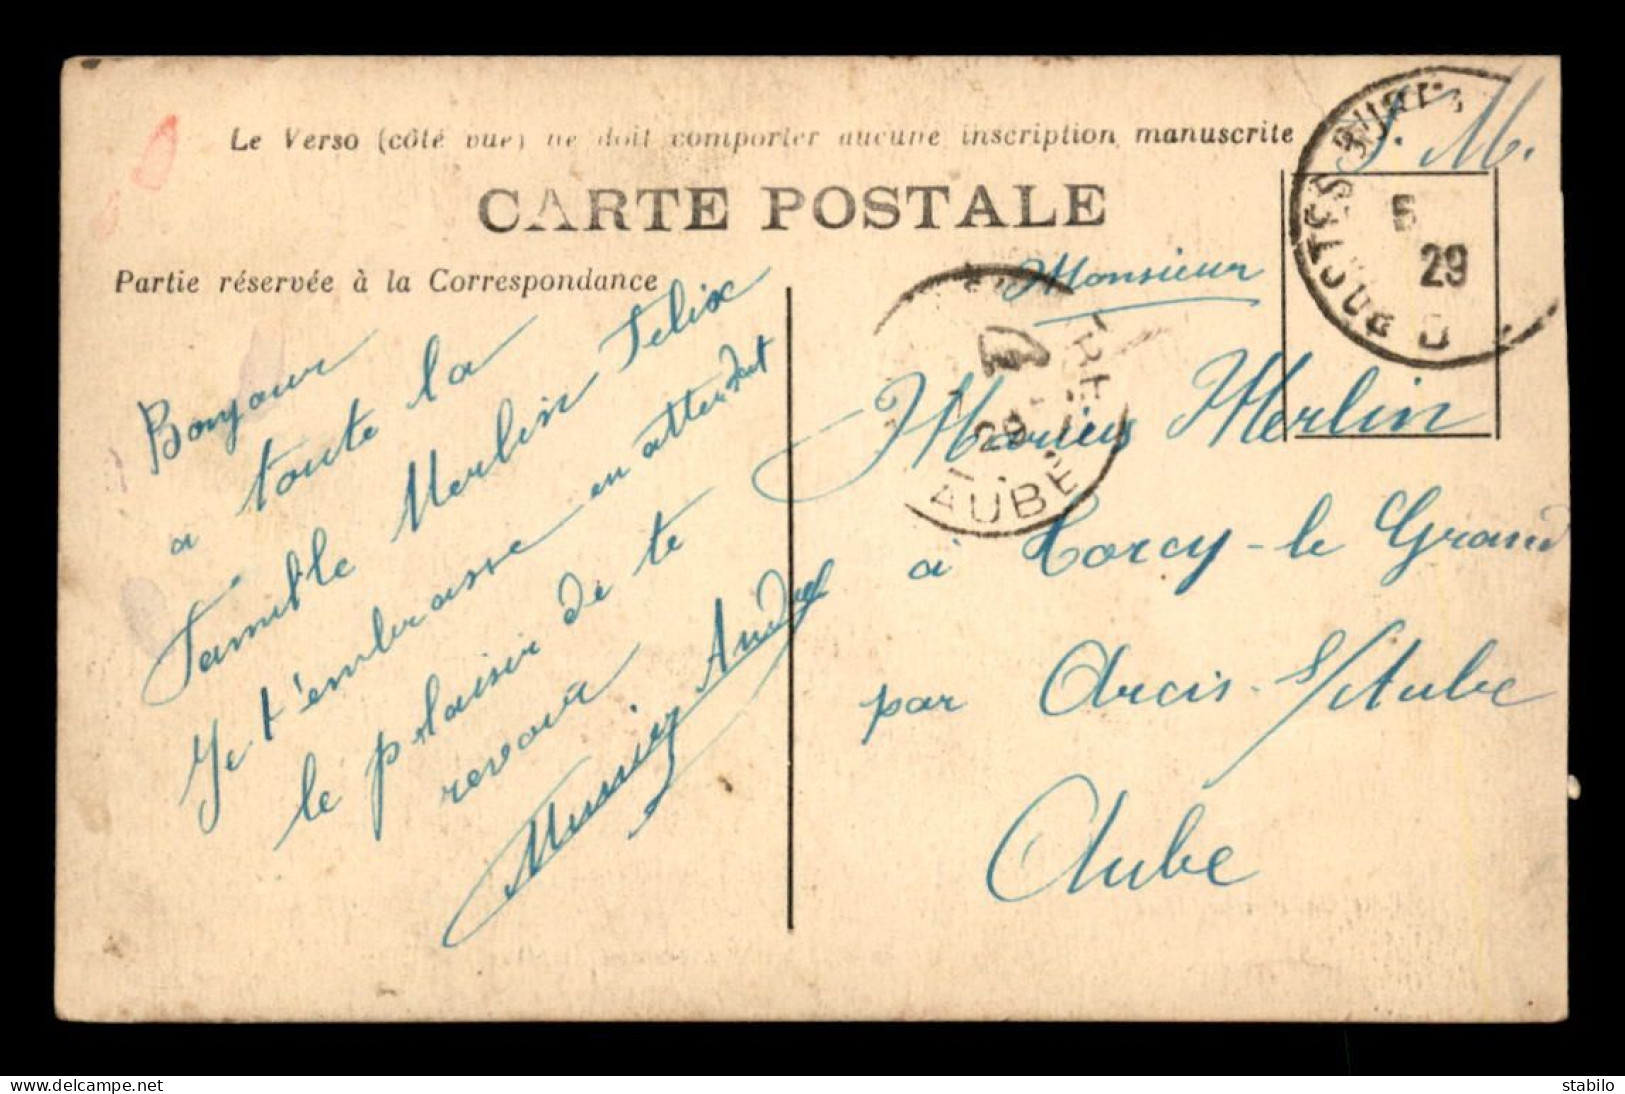 Le Verso (côté vue) ne doit comporter aucune inscription manuscrite
F. M.
CARTE POSTALE
Partie réservée à la Correspondance
5
29
29
AUBE
Bonjour
a toute la
famille Merlin Felix
Je t'embrasse en attendant
le plaisir de te
revoir
Munier André
Monsieur
Marius Merlin
à Torcy-le Grand
par Arcis-s/Aube
Aube
delcampe.net
stabilo